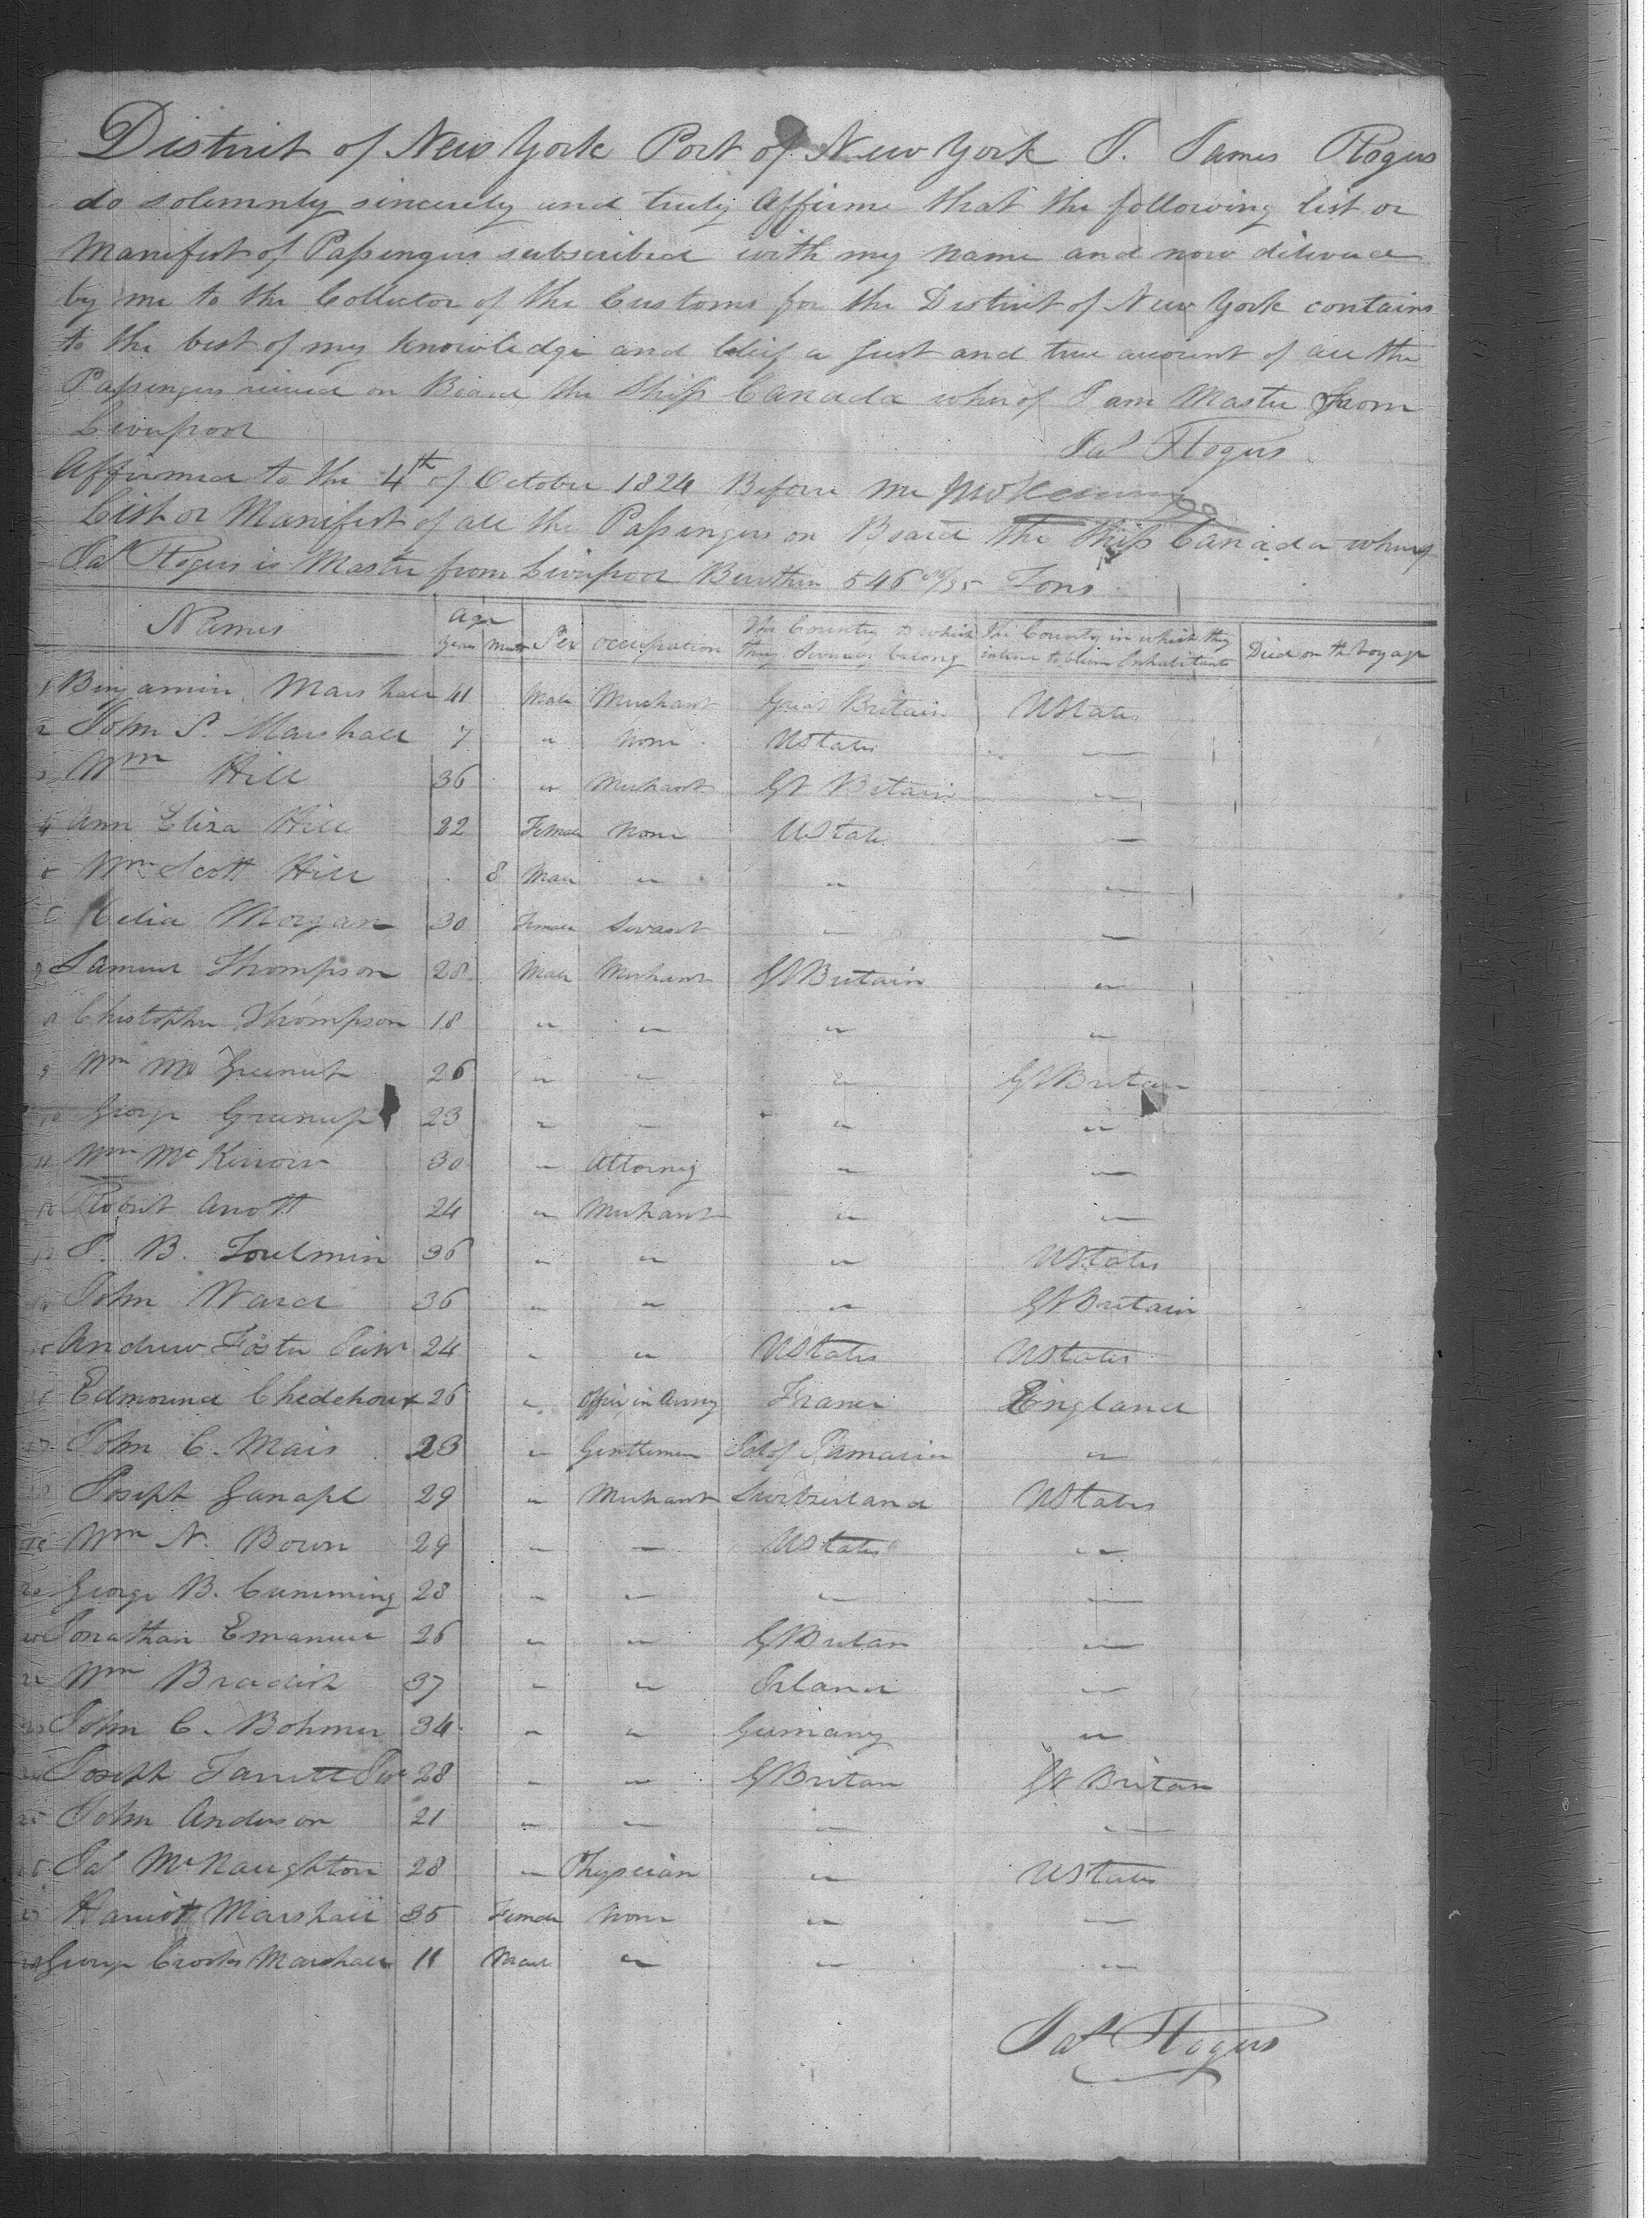 District of New York Port of New York I. James Rogers
do solemnly sincerely and truly affirme that the following list or
Manifest of Passengers subscribed with my name and now delivered
by me to the Collector of the Customs for the District of New York contains
to the best of my knowledge and belief a just and true account of all the
Passengers received on Board the Ship Canada whereof I am Master From
Liverpool
Jas Rogers
Affirmed to the 4th of October 1824 Before me
List or Manifest of all the Passengers on Board the Ship Canada whereof
Jas Rogers is Master from Liverpool Burthen 546 /95 Tons
Names Age Years Months Sex Occupation The Country to which they Severally belong The Country in which they intend to become Inhabitants Died on the Voyage
1 Benjamin Marshall 41 Male Merchant Great Britain UStates
2 John P. Marshall 7 " None UStates —
3 Wm Hill 36 " Merchant Gt Britain "
4 Ann Eliza Hill 22 Female None UState —
5 Wm Scott Hill 8 Male " " "
6 Celia Morgan 30 Female Servant " —
7 Samuel Thompson 28 Male Merchant Gt Britain "
8 Christopher Thompson 18 " " " "
9 Wm Greenup 26 " " " Gt Britain
10 George Greenup 23 " " " "
11 Wm Mc 30 " Attorney " "
12 Robert Arrott 24 " Merchant " "
13 J. B. Toulmin 36 " " " UStates
14 John Ward 36 " " " Gt Britain
15 Andrew Foster Junr 24 " " UStates UStates
16 Edmound Chedehoux 26 " Officer in Army France England
17 John C. Mais 23 " Gentlemen Isd of Jamaica "
18 Joseph 29 " Merchant Switzerland UStates
19 Wm N. Bown 29 " " UStates "
20 George B. Cumming 28 " " " —
21 Jonathan Emanuel 26 " " Gt Britan "
22 Wm Bradish 37 " " Irland "
23 John C. Bohmer 34 " " Germany "
24 Joseph Jarrett Jur 28 " " Gt Britan Gt Britan
25 John Anderson 21 " " " "
26 Jas McNaughton 28 " Physician " UStates
27 Harriott Marshall 35 Female None " —
28 George Crooks Marshall 11 Male " " "
Jas Rogers